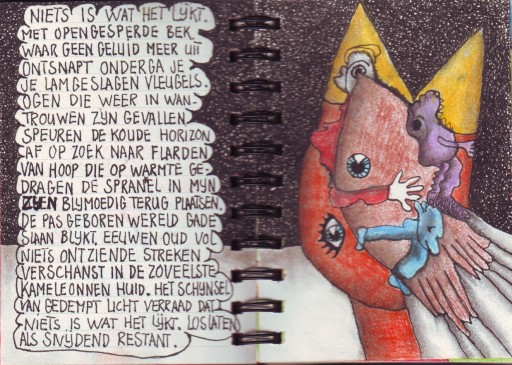 NIETS IS WAT HET LIJKT.
MET OPENGESPERDE BEK
WAAR GEEN GELUID MEER UIT
ONTSNAPT ONDERGA JE
JE LAMGESLAGEN VLEUGELS.
OGEN DIE WEER IN WAN-
TROUWEN ZIJN GEVALLEN
SPEUREN DE KOUDE HORIZON
AF OP ZOEK NAAR FLARDEN
VAN HOOP DIE OP WARMTE GE-
DRAGEN DE SPRANKEL IN MIJN
BLIJMOEDIG TERUG PLAATSEN.
DE PAS GEBOREN WERELD GADE
SLAAN BLIJKT, EEUWEN OUD VOL
NIETS ONTZIENDE STREKEN
VERSCHANST IN DE ZOVEELSTE
KAMELEONNEN HUID. HET SCHIJNSEL
VAN GEDEMPT LICHT VERRAAD DAT
NIETS IS WAT HET LIJKT. LOSLATEN
ALS SNIJDEND RESTANT.